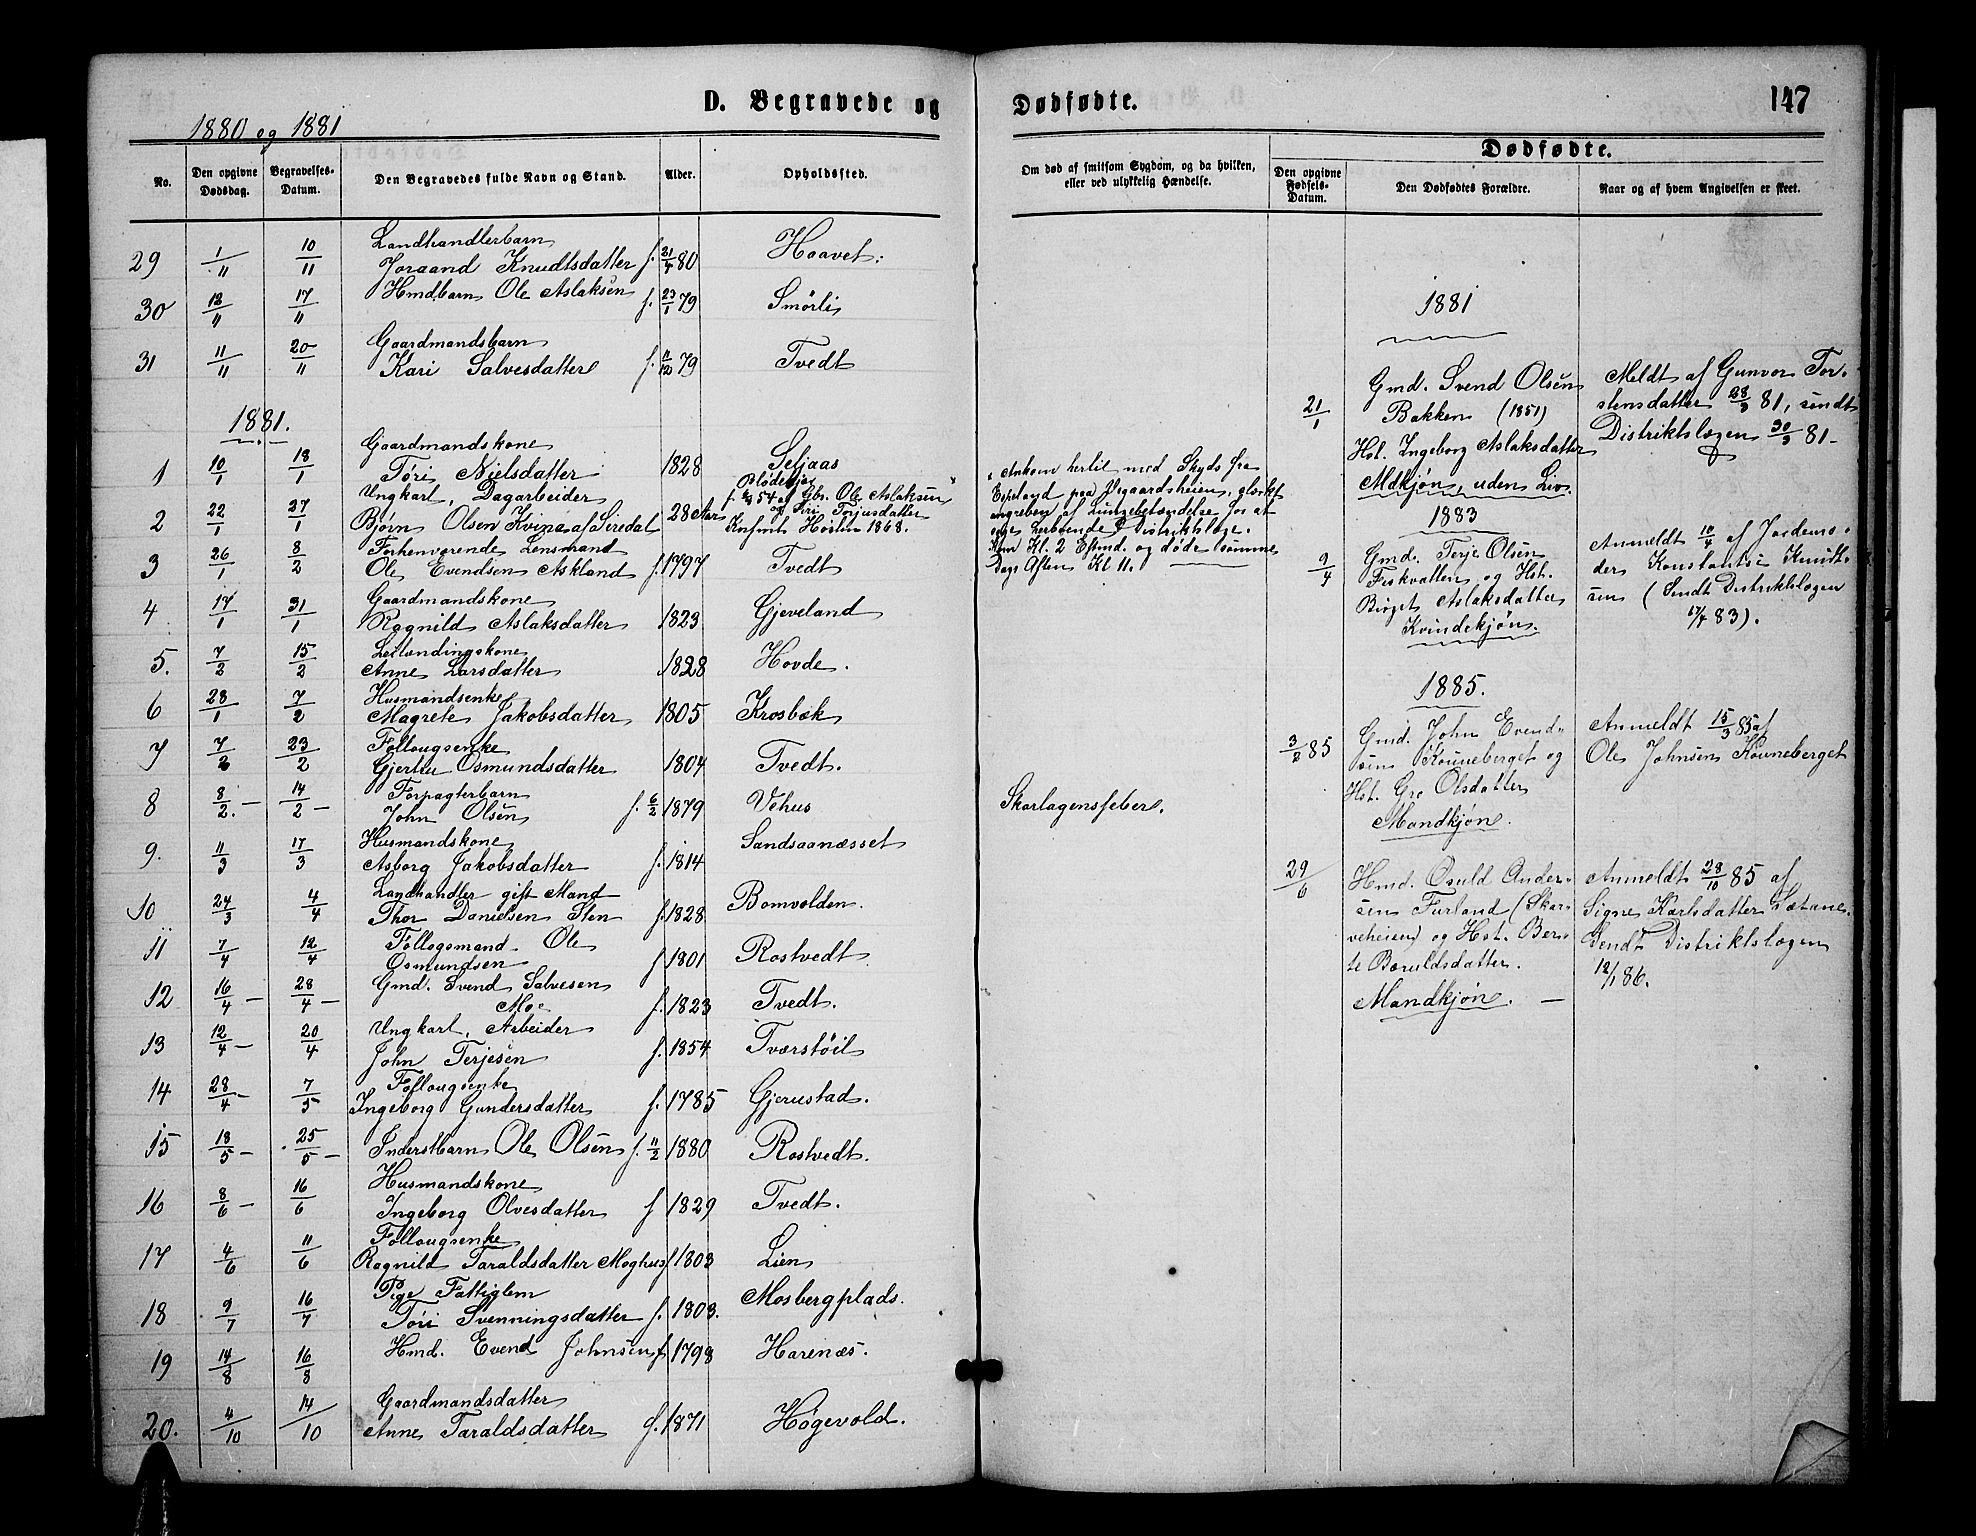 D. Begravede og
1880 og 1881
No.
Den opgivne Dødsdag.
Begravelses-Datum.
Den Begravedes fulde Navn og Stand.
Alder.
Opholdssted.
29 1/11 10/11 Landhandlerbarn
Joraand Knudtsdatter f. 21/4 80 Haavet.
30 12/11 17/11 Hmdbarn Ole Aslaksen f. 23/1 79 Smørli
31 11/11 20/11 Gaardmandsbarn
Kari Salvesdatter f. 11/12 79 Tvedt
1881.
1 10/1 18/1 Gaardmandskone
Tøri Nielsdatter 1828 Seljaas
2 22/1 27/1 Ungkarl, Dagarbeider
Bjørn Olsen Kvina af Siredal 28 Aar
f. 54 af Gbr. Ole Aslaksen
og Siri
Knfmt. Høsten 1868.
3 26/1 8/2 Forhenværende Lensmand
Ole Evendsen Askland f. 1797 Tvedt
4 17/1 31/1 Gaardmandskone
Ragnild Aslaksdatter 1823 Gjeveland
5. 7/2 15/2 Leilændingskone
Anne Larsdatter 1828 Hovde.
6 28/1 7/2 Husmandsenke
Magrete Jakobsdatter 1805 Krosbæk
7 7/2 23/2 Føllougsenke
Gjertru Osmundsdatter 1804 Tvedt.
8 8/2. 14/2 Forpagterbarn
John Olsen f. 6/2 1879 Vehus
9. 11/3 17/3 Husmandskone
Asborg Jakobsdatter f. 1814 Sandsaanæsset
10 24/3 4/4 Landhandler gift Mand
Thor Danielsen Sten f. 1828 Bomvolden.
11 7/4 12/4 Føllogsmand Ole
Osmundsen f 1801 Rostvedt
12 16/4 28/4 Gmd. Svend Salvesen
Moe f. 1823 Tvedt.
13 12/4 20/4 Ungkarl, Arbeider
John Terjesen f. 1854 Tværstøil
14 28/4 7/5 Føllougsenke
Ingeborg Gundersdatter f. 1785 Gjerustad.
15 18/5 25/5 Inderstbarn Ole Olsen f. 11/2 1880 Rostvedt.
16 8/6 16/6 Husmandskone
Ingeborg Olvesdatter f 1829 Tvedt.
17 4/6 11/6 Føllougsenke
Ragnild Taraldsdatter Moghus f 1803 Lien
18 9/7 16/7 Pige Fattiglem
Tøri Svenningsdatter f. 1803. Mosbergplads.
19 14/8 16/8 Hmd. Evend Johnsen f 1798 Harenæs.
20. 4/10 14/10 Gaardmandsdatter
Anne Taraldsdatter f. 1871 Høgevold.
Dødfødte.
147
Om død af smitsom Sygdom, og da hvilken,
eller ved ulykkelig Hændelse.
Dødfødte.
Den opgivne Fødsels-Datum.
Den Dødfødtes Forældre.
Naar og af hvem Angivelsen er skeet.
Ankom hertil med Skyds fra
Espeland paa Vegaardsheien, stærkt
angreben af Lungebetændelse for at
søge herboende Distriktslæge.
Kom Kl. 2 Eftmd. og døde samme
Dags Aften Kl 11.
Skarlagensfeber.
1881
21/1 Gmd. Svend Olsen
Bakken (1851)
Hst. Ingeborg Aslaksdatter
Mdkjøn, uden Liv.
Meldt af Gunvor Tor-
stensdatter 28/3 81, sendt
Distriktslægen 30/3 81-
1883
9/4 Gmd. Terje Olsen
Fiskvatten og Hst.
Birget Aslaksdatter
Kvindekjøn.
Anmeldt 10/4 af Jordemo-
der Konstantse Knudt-
sen (Sendt Distriktslægen
17/4 83).
1885.
3/2 85 Gmd. John Evend-
sen Kouneberget og
Hst. Gro Olsdatter
Mandkjøn.
Anmeldt 15/3 85 af
Ole Johnsen Kouneberget
29/6 Hmd. Osuld Ander-
sen Furland (Skar-
veheien) og Hst. Ber-
te Baruldsdatter.
Mandkjøn.
Anmeldt 28/10 85 af
Signe Karlsdatter Lætane.
Sendt Distriktslægen
12/1 86.